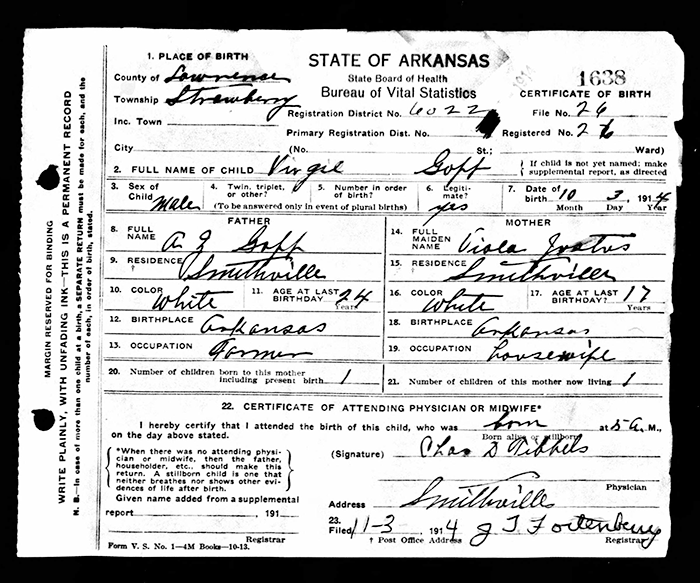 1638
STATE OF ARKANSAS
State Board of Health
Bureau of Vital Statistics
CERTIFICATE OF BIRTH
1. PLACE OF BIRTH
County of Lawrence
Township Strawberry
Inc. Town
City (No. St.: Ward)
Registration District No. 6022 File No. 26
Primary Registration Dist. No. Registered No. 26
2. FULL NAME OF CHILD Virgil Goff
If child is not yet named; make
supplemental report, as directed
3. Sex of Child Male
4. Twin, triplet, or other?
5. Number in order of birth?
(To be answered only in event of plural births)
6. Legiti-mate? yes
7. Date of birth 10 3, 1914
Month Day Year
FATHER
8. FULL NAME A Z Goff
9. RESIDENCE † Smithville
10. COLOR White 11. AGE AT LAST BIRTHDAY 24 Years
12. BIRTHPLACE Arkansas
13. OCCUPATION Farmer
MOTHER
14. FULL MAIDEN NAME Viola
15. RESIDENCE Smithville
16. COLOR White 17. AGE AT LAST BIRTHDAY 17 Years
18. BIRTHPLACE Arkansas
19. OCCUPATION housewife
20. Number of children born to this mother
including present birth 1
21. Number of children of this mother now living 1
22. CERTIFICATE OF ATTENDING PHYSICIAN OR MIDWIFE*
I hereby certify that I attended the birth of this child, who was born at 5 a. M.,
Born alive or stillborn
on the day above stated.
*When there was no attending physi-
cian or midwife, then the father,
householder, etc., should make this
return. A stillborn child is one that
neither breathes nor shows other evi-
dences of life after birth.
(Signature) Chas D Tibbels
Physician
Given name added from a supplemental
report , 191
Registrar
Address Smithville
23.
Filed 11-3 1914 J T Fortenberry
† Post Office Address Registrar
Form V. S. No. 1—4M Books—10-13.
MARGIN RESERVED FOR BINDING
WRITE PLAINLY, WITH UNFADING INK—THIS IS A PERMANENT RECORD
N. B.—In case of more than one child at a birth, a SEPARATE RETURN must be made for each, and the
number of each, in order of birth, stated.